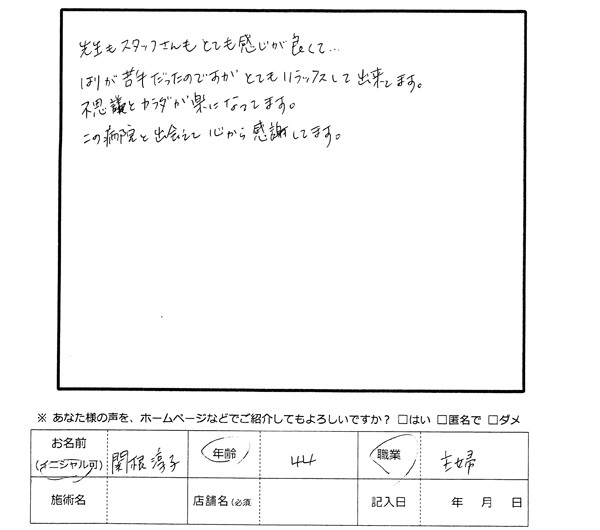 先生もスタッフさんもとても感じが良くて…
はりが苦手だったのですがとてもリラックスして出来てます。
不思議とカラダが楽になってます。
この病院と出会えて心から感謝してます。
※ あなた様の声を、ホームページなどでご紹介してもよろしいですか？ □はい □匿名で □ダメ
お名前 (イニシャル可) 関根淳子 年齢 44 職業 主婦
施術名 店舗名(必須) 記入日 年 月 日